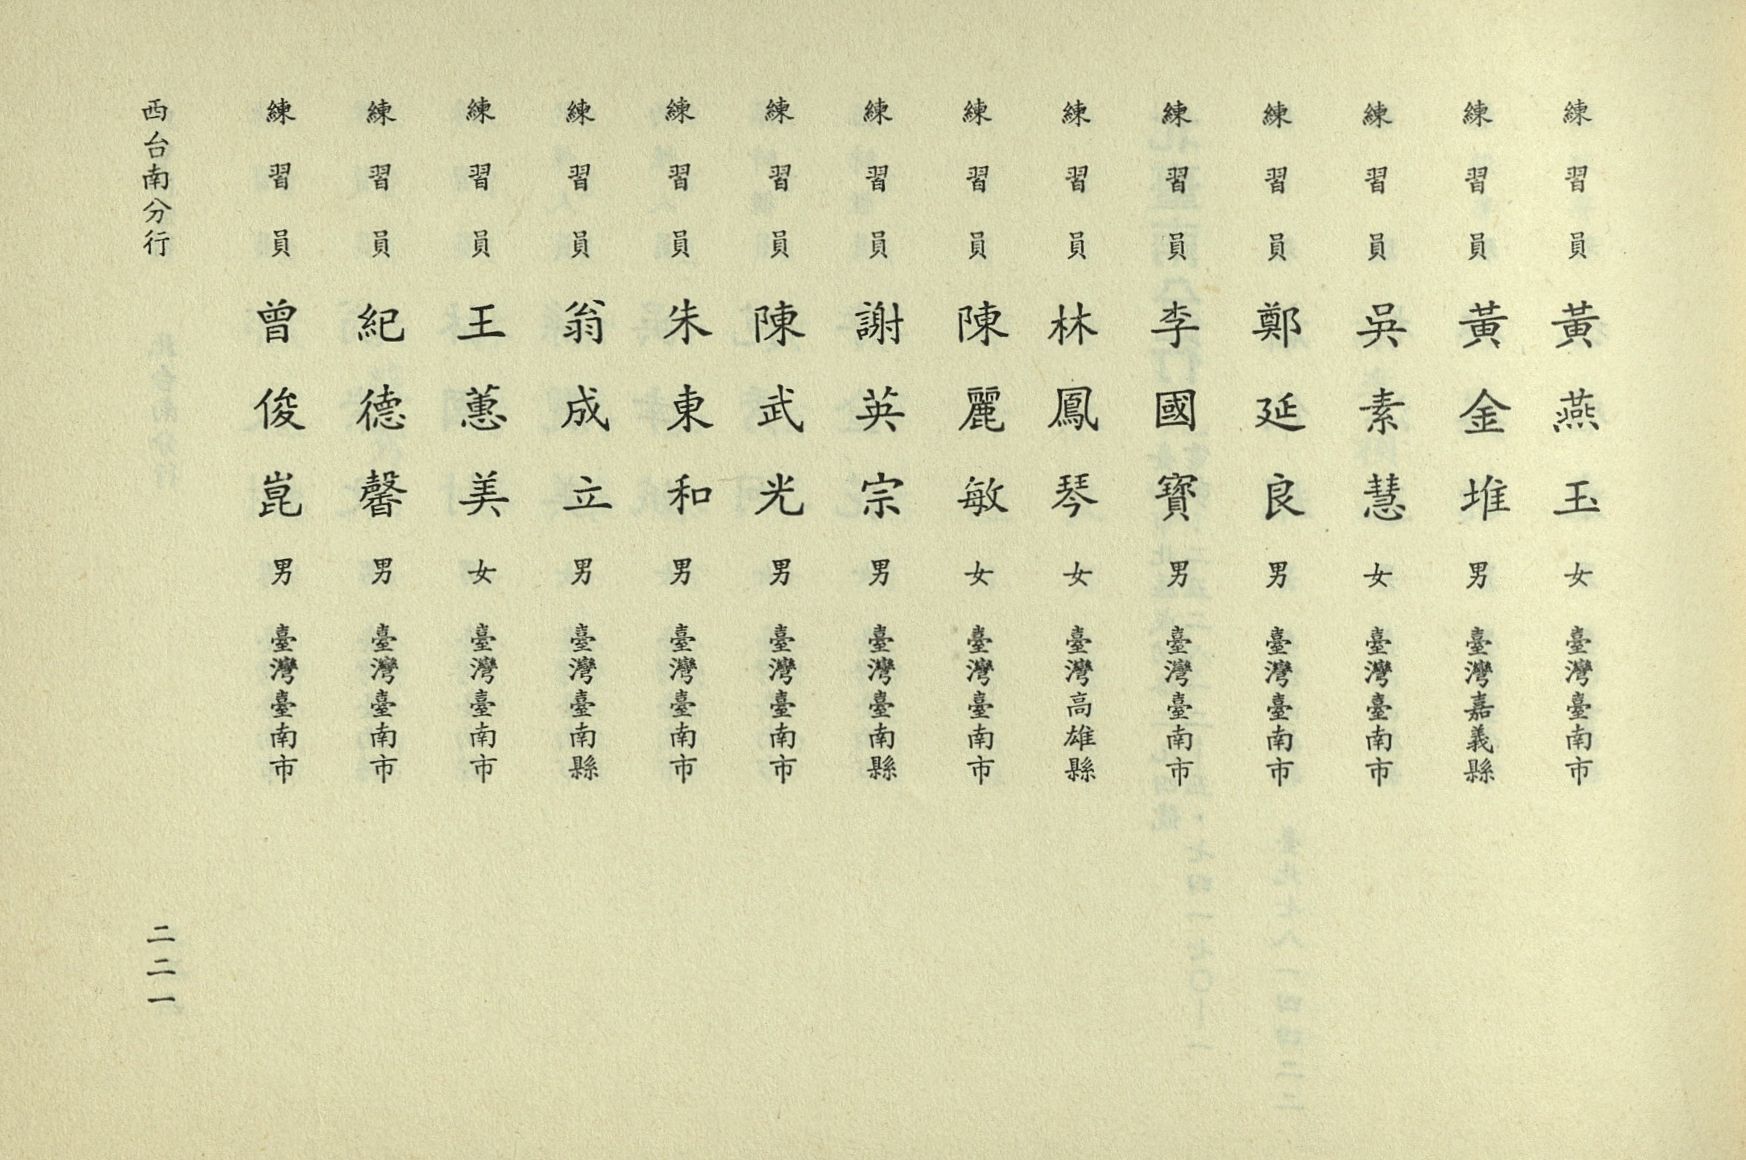 練習員 黃燕玉 女 臺灣臺南市
練習員 黃金堆 男 臺灣嘉義縣
練習員 吳素慧 女 臺灣臺南市
練習員 鄭延良 男 臺灣臺南市
練習員 李國寶 男 臺灣臺南市
練習員 林鳳琴 女 臺灣高雄縣
練習員 陳麗敏 女 臺灣臺南市
練習員 謝英宗 男 臺灣臺南縣
練習員 陳武光 男 臺灣臺南市
練習員 朱東和 男 臺灣臺南市
練習員 翁成立 男 臺灣臺南縣
練習員 王蕙美 女 臺灣臺南市
練習員 紀德馨 男 臺灣臺南市
練習員 曾俊崑 男 臺灣臺南市
西台南分行
二二一